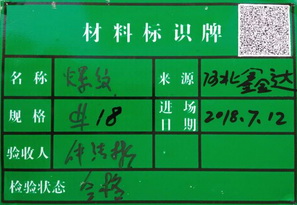 材料标识牌
名称 螺纹 来源 河北鑫达
规格 Φ18 进场日期 2018.7.12
验收人
检验状态 合格